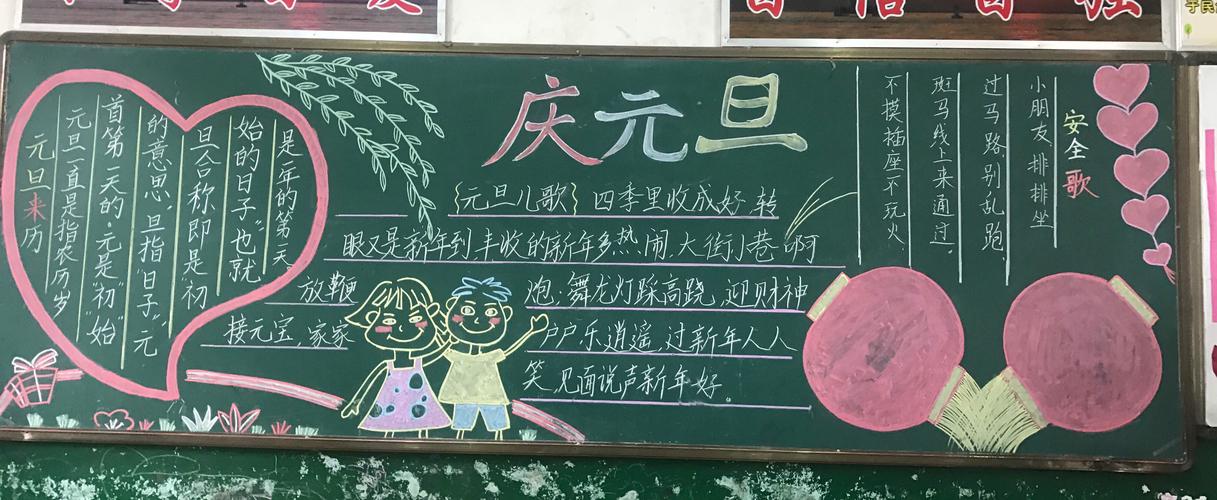 元旦来历
元旦一直是指农历岁
首第一天的.元是"初""始"
的意思.旦指"日子""元
旦合称即是"初
始的日子"也就
是一年的第一天
庆元旦
{元旦儿歌} 四季里收成好,转
眼又是新年到.丰收的新年多热闹.大街小巷啊
放鞭炮.舞龙灯踩高跷,迎财神
接元宝,家家户户乐逍遥,过新年人人
笑,见面说声新年好。
安全歌
小朋友,排排坐
过马路,别乱跑,
斑马线上来通过,
不摸插座不玩火